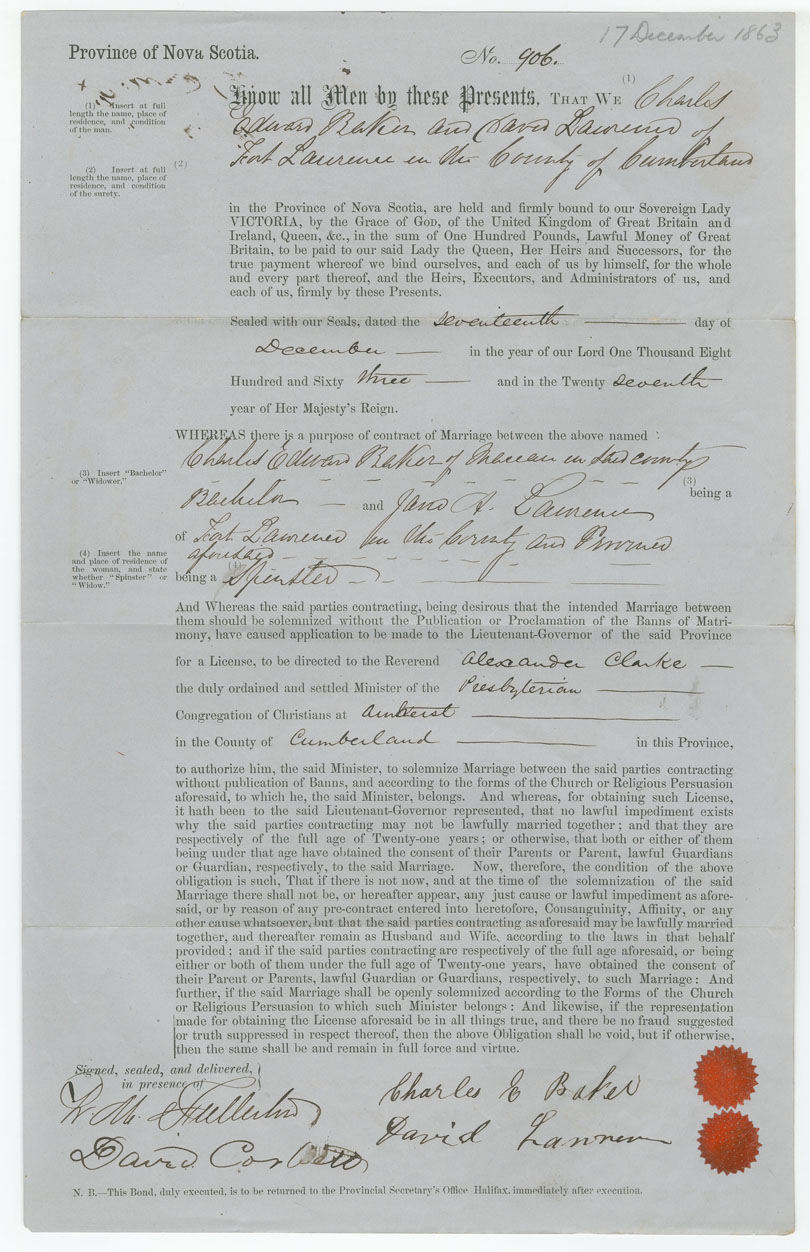 17 December 1863
Province of Nova Scotia.
No. 906.
(1) Insert at full length the name, place of residence, and condition of the man.
(2) Insert at full length the name, place of residence, and condition of the surety.
Know all Men by these Presents, THAT WE (1) Charles
Edward Baker and David Lawrence of
(2) Fort Lawrence in the County of Cumberland
in the Province of Nova Scotia, are held and firmly bound to our Sovereign Lady
VICTORIA, by the Grace of GOD, of the United Kingdom of Great Britain and
Ireland, Queen, &c., in the sum of One Hundred Pounds, Lawful Money of Great
Britain, to be paid to our said Lady the Queen, Her Heirs and Successors, for the
true payment whereof we bind ourselves, and each of us by himself, for the whole
and every part thereof, and the Heirs, Executors, and Administrators of us, and
each of us, firmly by these Presents.
Sealed with our Seals, dated the seventeenth day of
December in the year of our Lord One Thousand Eight
Hundred and Sixty three and in the Twenty seventh
year of Her Majesty's Reign.
WHEREAS there is a purpose of contract of Marriage between the above named
Charles Edward Baker of Maccan in said county
(3) Insert "Bachelor" or "Widower."
Bachelor (3) being a
and Jane A. Lawrence
of Fort Lawrence in the County and Province
aforesaid
(4) Insert the name and place of residence of the woman, and state whether "Spinster" or "Widow."
being a (4) Spinster
And Whereas the said parties contracting, being desirous that the intended Marriage between
them should be solemnized without the Publication or Proclamation of the Banns of Matri-
mony, have caused application to be made to the Lieutenant-Governor of the said Province
for a License, to be directed to the Reverend Alexander Clarke
the duly ordained and settled Minister of the Presbyterian
Congregation of Christians at Amherst
in the County of Cumberland in this Province,
to authorize him, the said Minister, to solemnize Marriage between the said parties contracting
without publication of Banns, and according to the forms of the Church or Religious Persuasion
aforesaid, to which he, the said Minister, belongs. And whereas, for obtaining such License,
it hath been to the said Lieutenant-Governor represented, that no lawful impediment exists
why the said parties contracting may not be lawfully married together; and that they are
respectively of the full age of Twenty-one years; or otherwise, that both or either of them
being under that age have obtained the consent of their Parents or Parent, lawful Guardians
or Guardian, respectively, to the said Marriage. Now, therefore, the condition of the above
obligation is such, That if there is not now, and at the time of the solemnization of the said
Marriage there shall not be, or hereafter appear, any just cause or lawful impediment as afore-
said, or by reason of any pre-contract entered into heretofore, Consanguinity, Affinity, or any
other cause whatsoever, but that the said parties contracting as aforesaid may be lawfully married
together, and thereafter remain as Husband and Wife, according to the laws in that behalf
provided; and if the said parties contracting are respectively of the full age aforesaid, or being
either or both of them under the full age of Twenty-one years, have obtained the consent of
their Parent or Parents, lawful Guardian or Guardians, respectively, to such Marriage: And
further, if the said Marriage shall be openly solemnized according to the Forms of the Church
or Religious Persuasion to which such Minister belongs: And likewise, if the representation
made for obtaining the License aforesaid be in all things true, and there be no fraud suggested
or truth suppressed in respect thereof, then the above Obligation shall be void, but if otherwise,
then the same shall be and remain in full force and virtue.
Signed, sealed, and delivered,
in presence of
W. M. Fullerton
David Corbett
Charles E Baker
David Lawrence
N. B.—This Bond, duly executed, is to be returned to the Provincial Secretary's Office Halifax, immediately after execution.